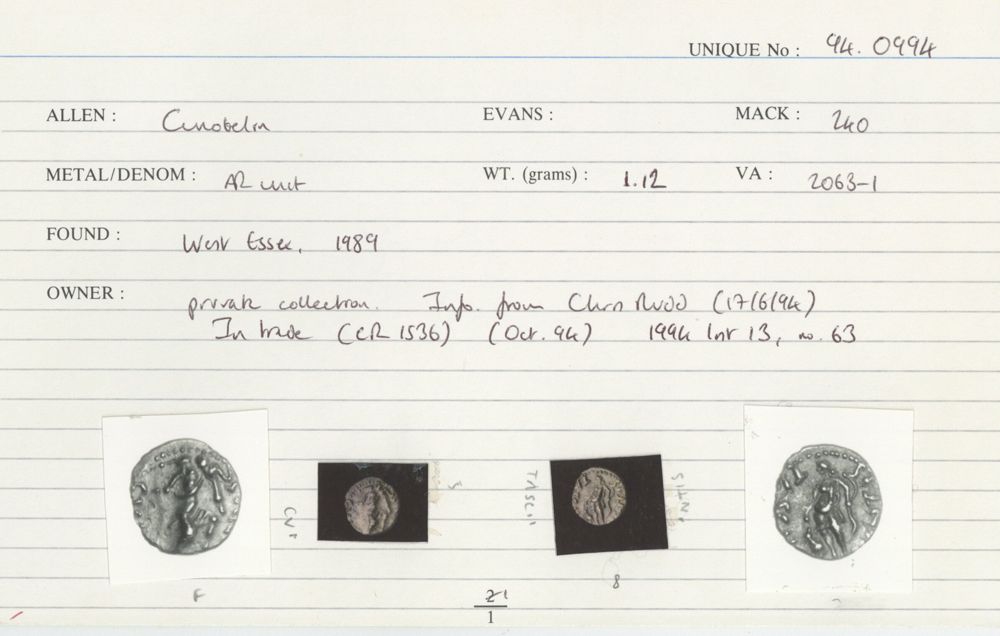 UNIQUE No : 94. 0994
ALLEN : Cunobelin EVANS : MACK : 240
METAL/DENOM : AR unit WT. (grams) : 1.12 VA : 2063-1
FOUND : West Essex, 1989
OWNER : private collection. Info. from Chris Rudd (17/6/94)
In trade (CR 1536) (Oct. 94) 1994 List 13, no. 63
TASCII
8
21
1